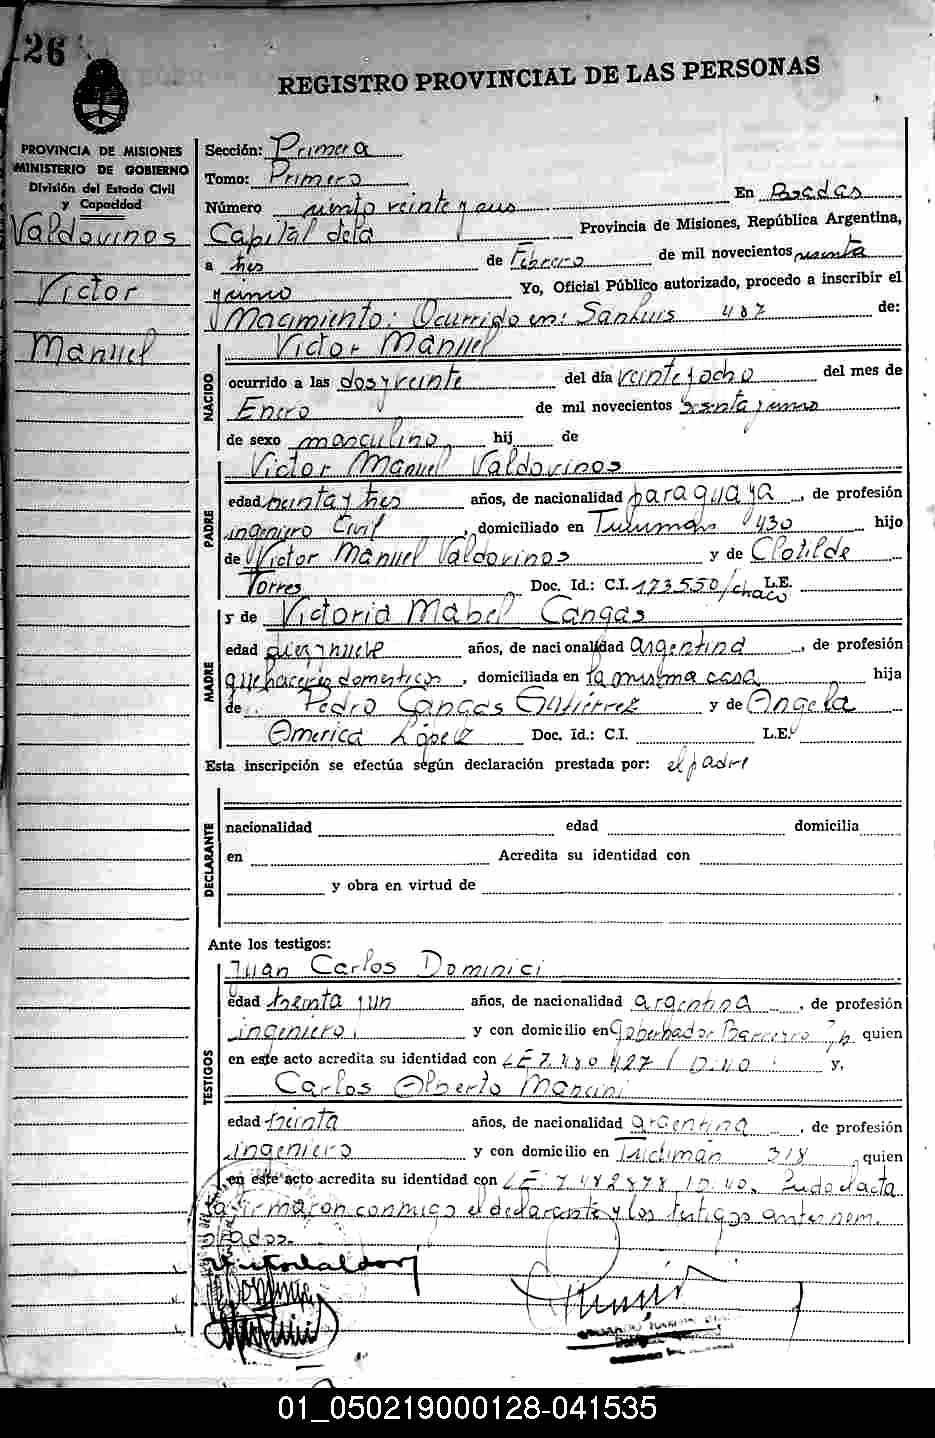 26
REGISTRO PROVINCIAL DE LAS PERSONAS
PROVINCIA DE MISIONES
MINISTERIO DE GOBIERNO
División del Estado Civil
y Capacidad
Valdovinos
Victor
Manuel
Sección: Primera
Tomo: Primero
Número ciento veinte y En Posadas
Capital de la Provincia de Misiones, República Argentina,
a tres de Febrero de mil novecientos sesenta
y cinco Yo, Oficial Público autorizado, procedo a inscribir el
Nacimiento: Ocurrido en: San Luis 487 de:
Victor Manuel
NACIDO
ocurrido a las dos y veinte del día veinte y ocho del mes de
Enero de mil novecientos sesenta y cinco
de sexo masculino, hij de
Victor Manuel Valdovinos
PADRE
edad y tres años, de nacionalidad paraguaya, de profesión
ingeniero Civil, domiciliado en Tucuman 430 hijo
de Victor Manuel Valdovinos y de Clotilde
Torres Doc. Id.: C.I. 173.550/chaco L.E.
y de Victoria Mabel Cangas
MADRE
edad diez y nueve años, de nacionalidad argentina, de profesión
quehaceres domesticos, domiciliada en la misma casa hija
de Pedro Cangas Gutierrez y de Angela
America López Doc. Id.: C.I. L.E.
Esta inscripción se efectúa según declaración prestada por: el padre
DECLARANTE
nacionalidad edad domicilia
en Acredita su identidad con
y obra en virtud de
Ante los testigos:
Juan Carlos Dominici
TESTIGOS
edad treinta y un años, de nacionalidad argentina, de profesión
ingeniero. y con domicilio en Gobernador Barreyro quien
en este acto acredita su identidad con LE 7.480.427 / D. 40 y,
Carlos Alberto Mancini
edad treinta años, de nacionalidad argentina, de profesión
ingeniero y con domicilio en Tucumán 318 quien
en este acto acredita su identidad con LE 7.482.878 D. 40. Leida el acta
la firmaron conmigo el declarante y los testigos antes nom.
brados.
01_050219000128-041535